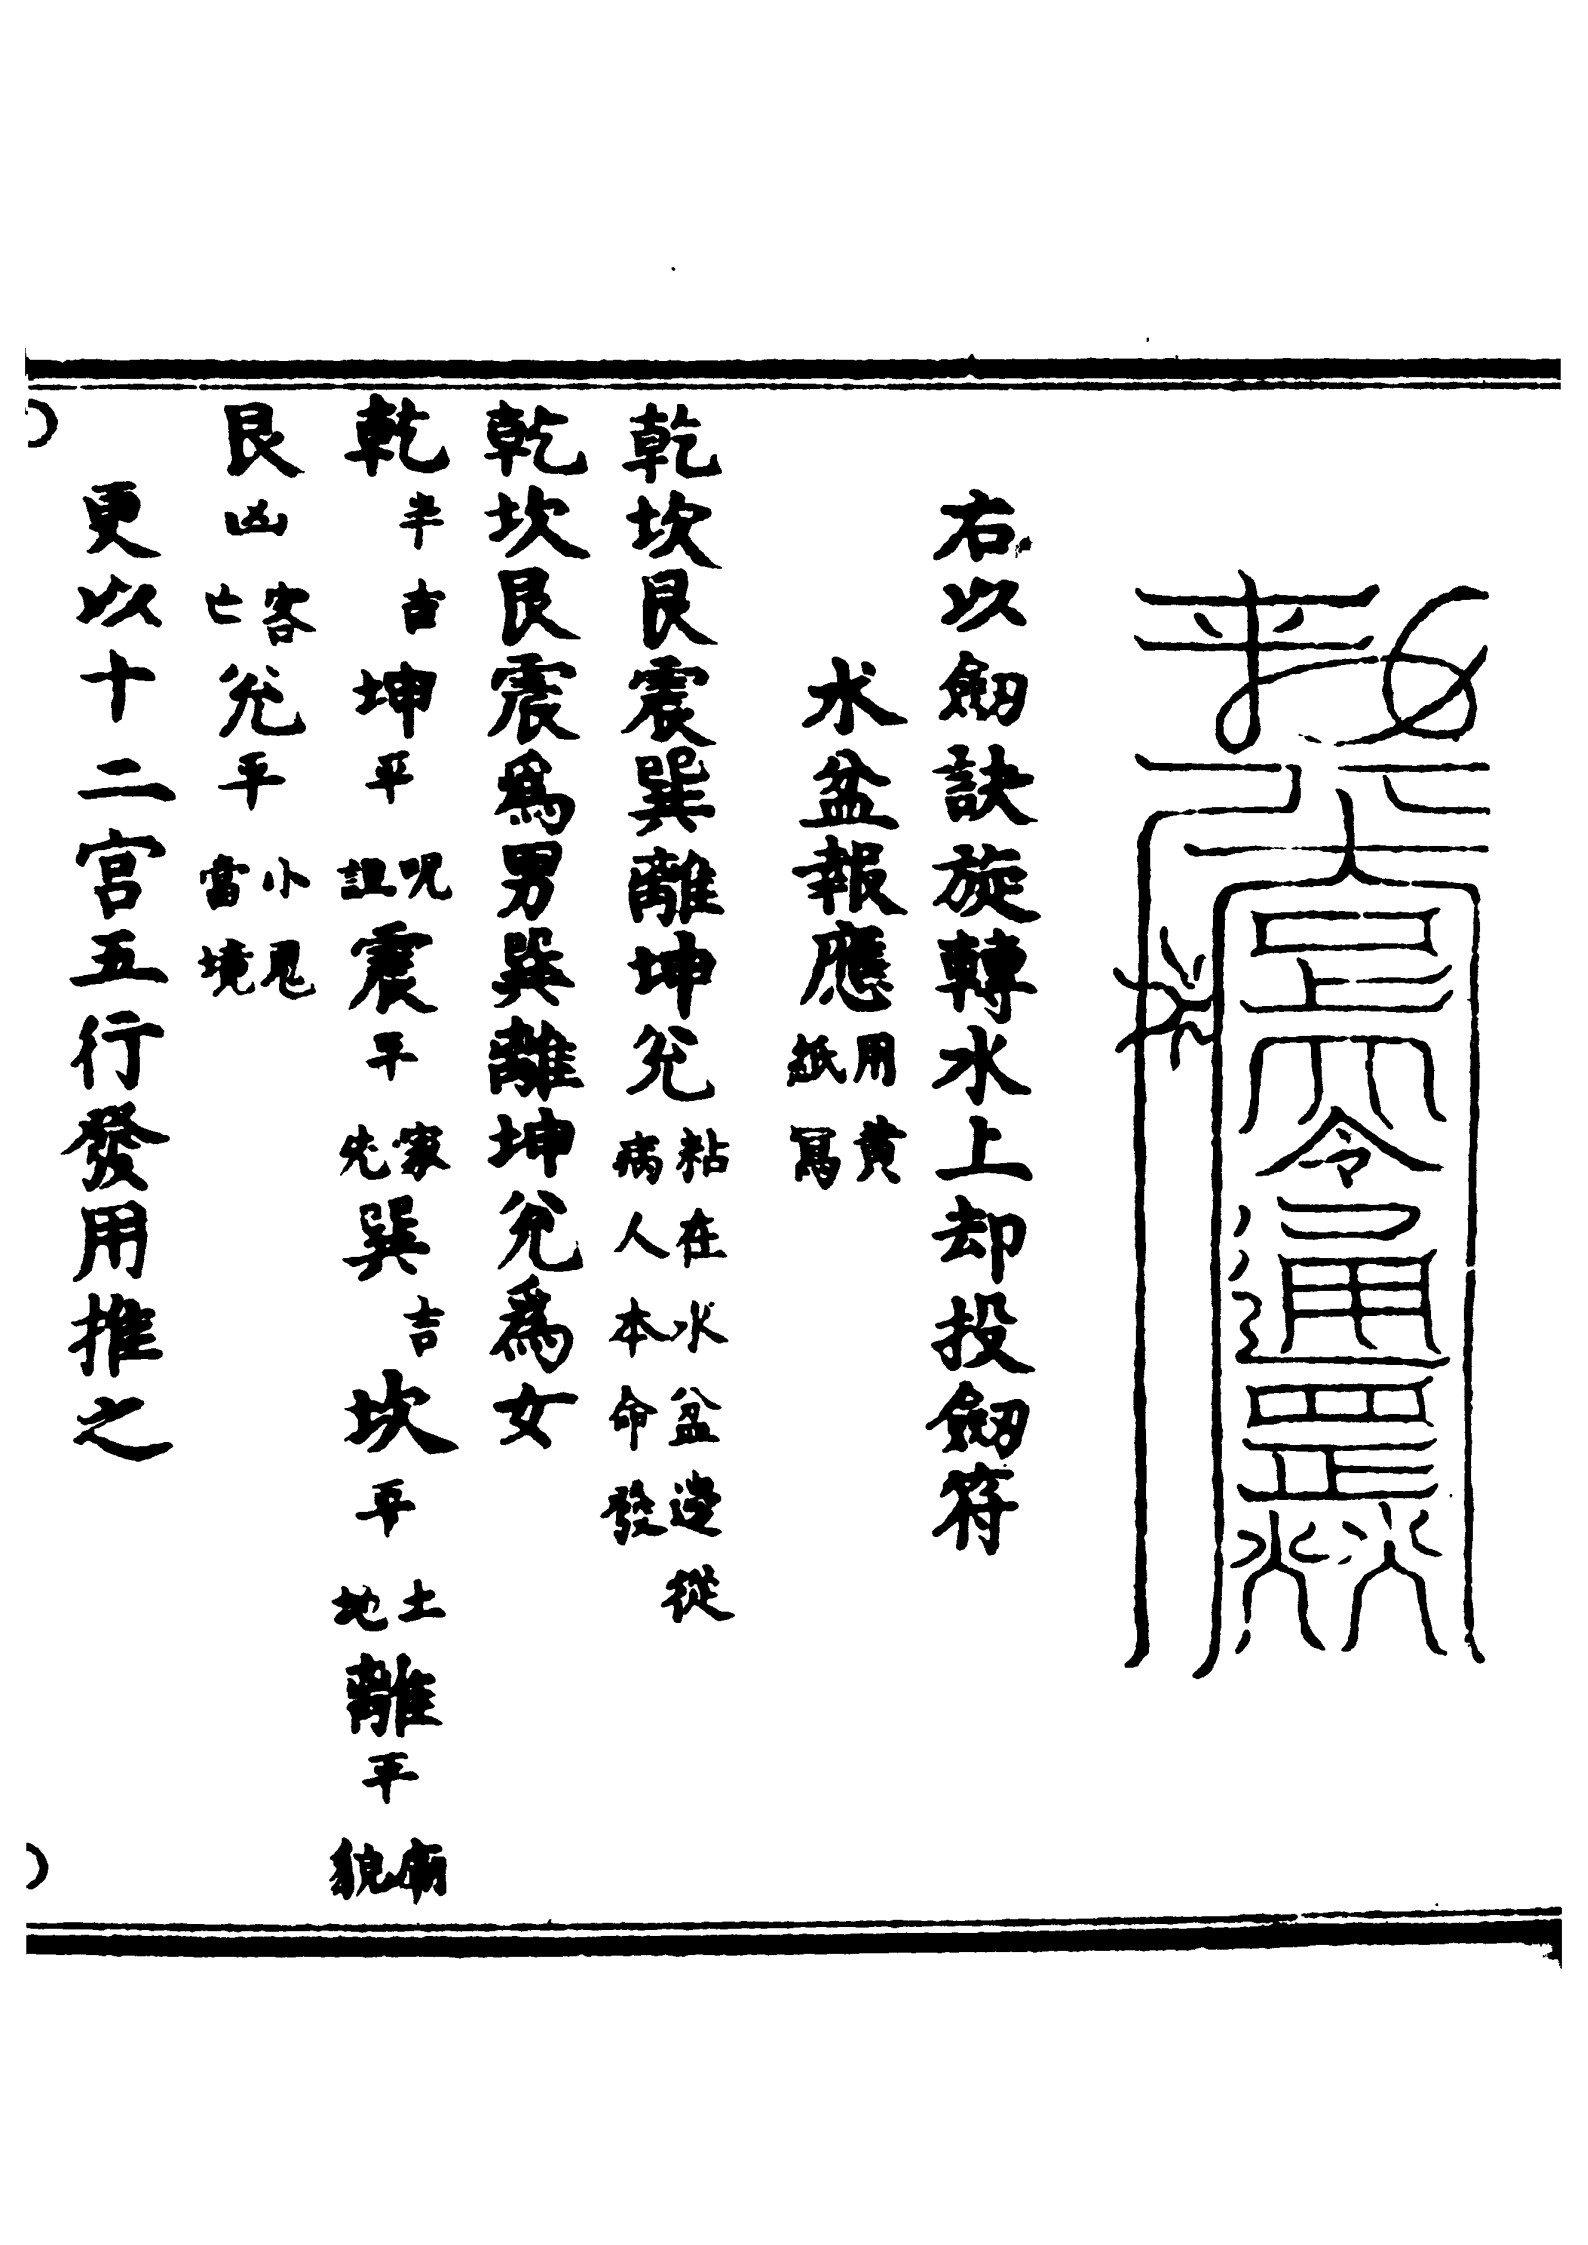 右以劒訣旋轉水上却投劒符
水盆報應用黄紙冩
乾坎艮震巽離坤兊粘在水盆邊從病人本命發
乾坎艮震爲男巽離坤兊爲女
乾半吉坤平呪詛震平家先巽吉坎平土地離平廟貌
艮凶客亡兊平小鬼當境
更以十二宫五行發用推之